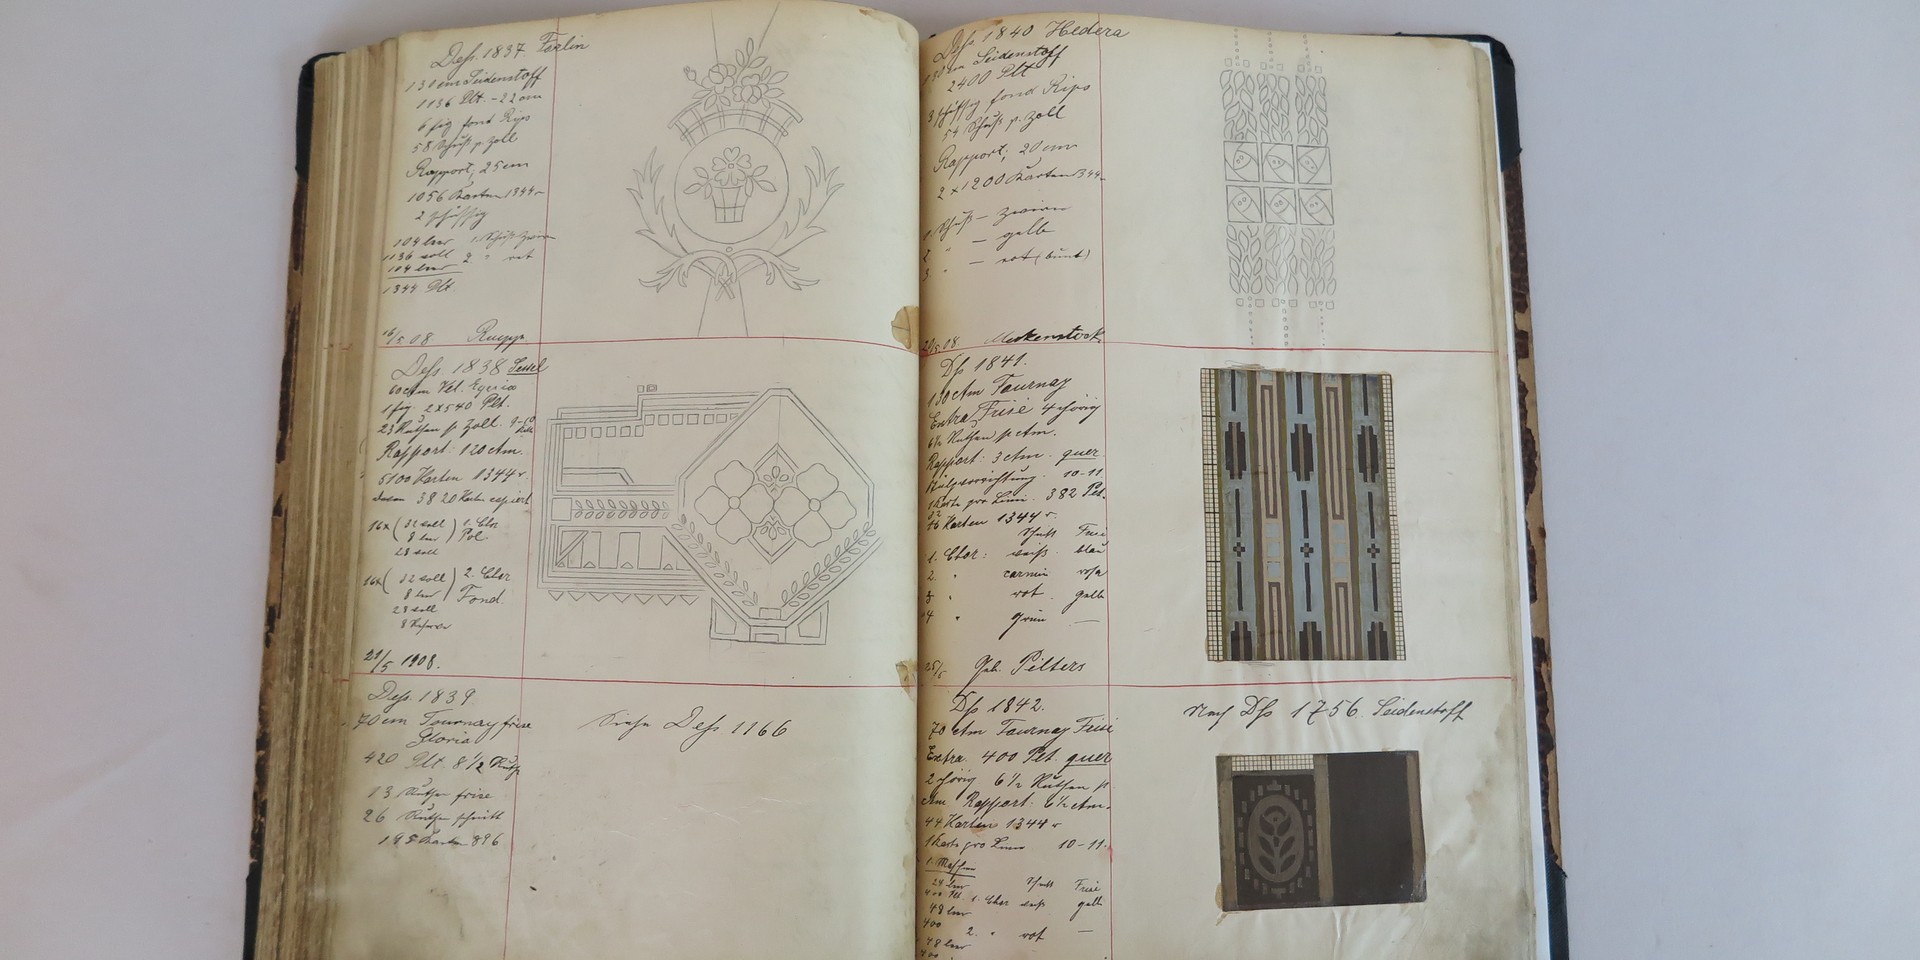 Dess. 1837 Ferlin
130 cm Seidenstoff
1136 Plt. - 22 cm
6 fig fond Rips
58 Schuß p. Zoll
Rapport; 25 cm
1056 Karten 1344 r
2 schüssig
104 leer 1. Schuß Zwirn
1136 voll 2 " rot
104 leer
1344 Plt.
16/5.08. Rupp
Dess. 1838 Sessel
60 ctm Vel.
2 x 540 Plt.
23 Ruthen p Zoll.
Rapport: 120 ctm.
5100 Karten 1344 r
3820 Karten copiert
16x ( 32 voll ) 1. Chor
8 leer Pol
28 voll
16x ( 32 voll ) 2. Chor
8 leer Fond.
28 voll
8 Reserve
23/5 1908.
Dess. 1839
70 cm Tournay frise
Gloria
420 Plt. 8 1/2 Ruth
13 Ruthen frise
26 Ruthen schnitt
195 Karten 896
Siehe Dess 1166
Dess 1840 Hedera
130 cm Seidenstoff
2400 Plt
3 schüssig fond Rips
54 Schuß p. Zoll
Rapport; 20 cm
2 x 1200 Karten 1344 r
1. Schuß — Zwirn
2 " — gelb
3 " — rot (bunt)
20/5.08. Meckenstock
Dss 1841.
130 ctm Tournay
Extra Frisé 4 chörig
6 1/2 Ruthen p ctm.
Rapport: 3 ctm. quer
10-11
1 Karte pro Linie. 382 Plt.
Karten 1344 r.
Schuss Frisé
1. Chor: weiß. blau
2. " carmin rosa
3 " rot. gelb
4 " grün —
25/5 Geb. Pelters
Dss 1842.
70 ctm Tournay Frisé
Extra. 400 Plt. quer
2 chörig 6 1/2 Ruthen p
ctm. Rapport: 6 1/2 ctm.
44 Karten 1344 r
1 Karte pro Linie 10-11.
24 leer Schuss Frisé
400 Plt 1. Chor weiß gelb
48 leer
400 2. " rot —
48 leer
400
Nach Dss 1756. Seidenstoff